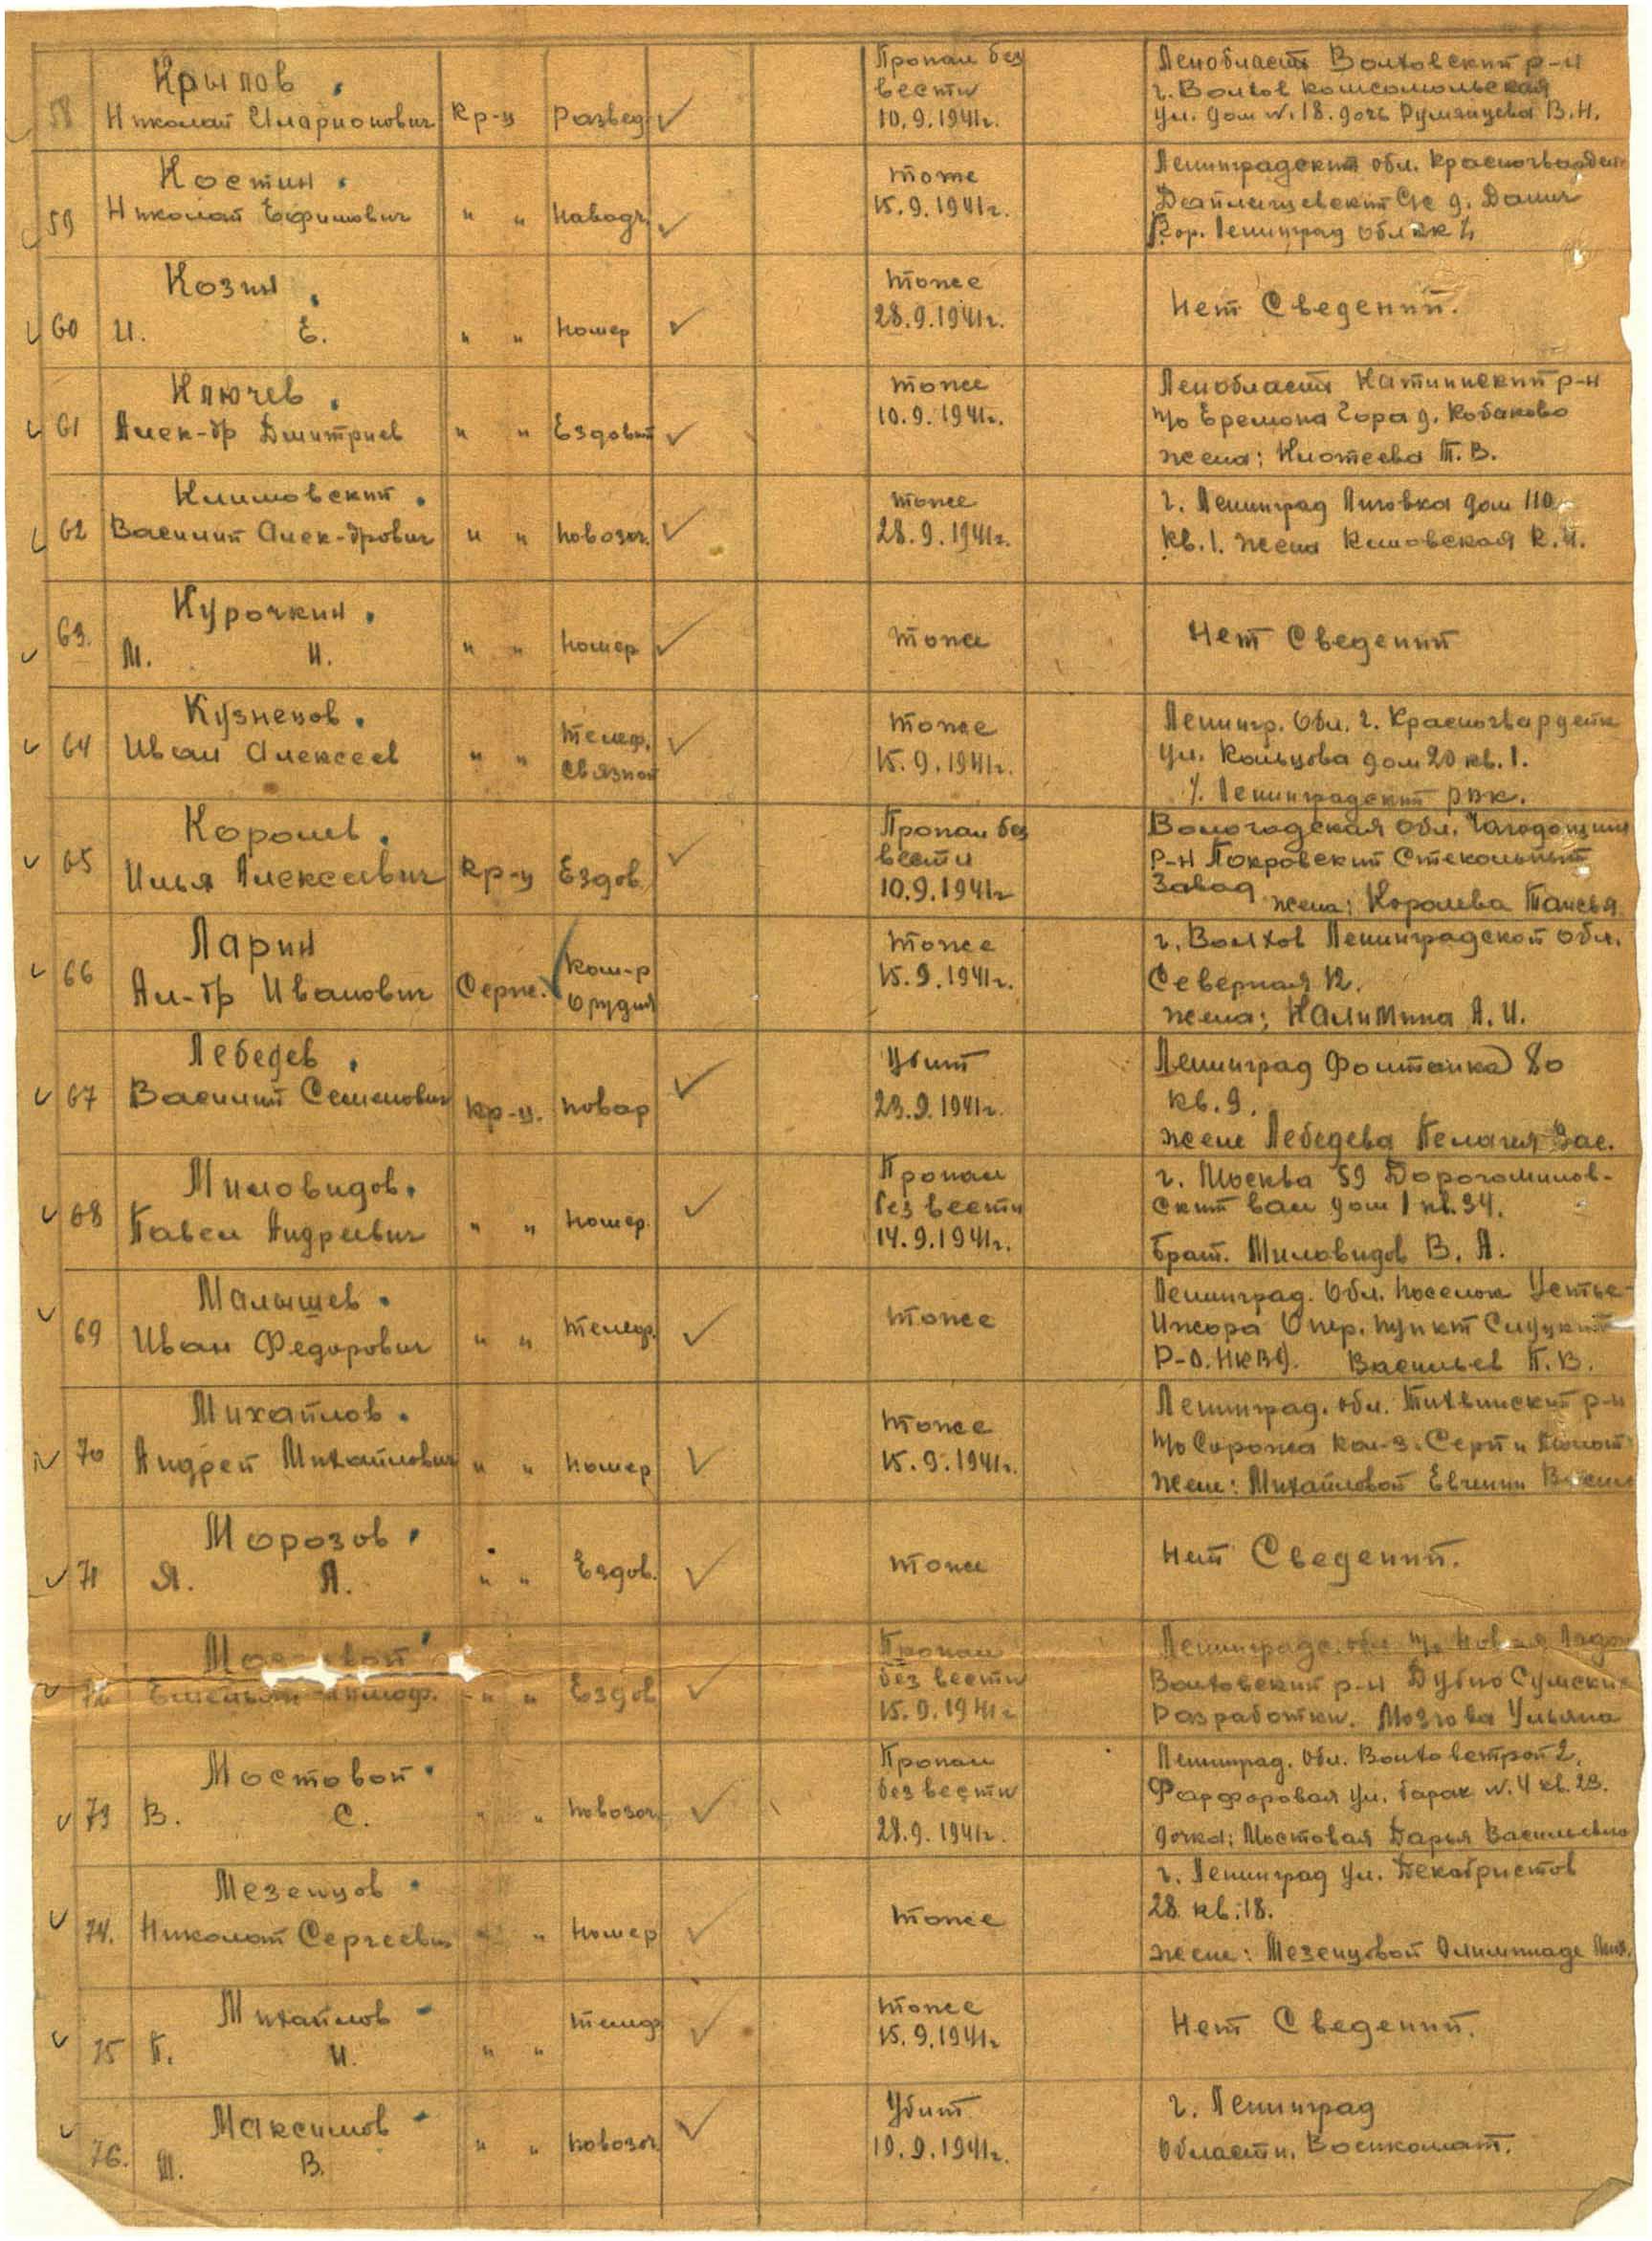 Крылов
58 Николай Иларионович кр-ц Развед.
Пропал без
вести
10.9.1941г.
Ленобласть Волховский р-н
г. Волхов комсомольская
ул. дом №.18. дочь Румянцева В.Н.
Костин
59 Николай Ефимович " " Наводч.
тоже
15.9.1941г.
Ленинградский обл. Красногвардей
С/с д.
Ленинград обл.
Козин
60 И. Е. " " номер
тоже
28.9.1941г.
Нет Сведений.
Ключев
61 Алек-др Дмитриев " " Ездовый
тоже
10.9.1941г.
Ленобласть р-н
п/о Еремена Гора д. Кобаково
жена: Т.В.
Климовский
62 Василий Алек-дрович " " повозоч.
тоже
28.9.1941г.
г. Ленинград Лиговка дом 110
кв.1. жена К.И.
Курочкин
63. М. И. " " номер
тоже
Нет Сведений
Кузнецов
64 Иван Алексеев " " телеф. Связной
тоже
15.9.1941г.
Ленингр. Обл. г. Красногвардейск
ул. Кольцова дом 20 кв.1.
Ленинградский РВК.
Королев
65 Илья Алексеевич кр-ц Ездов.
Пропал без
вести
10.9.1941г
Вологодская обл.
р-н Покровский Стекольный
Завод жена: Королева
Ларин
66 Ал-др Иванович Серж. ком-р Орудия
тоже
15.9.1941г.
г. Волхов Ленинградской обл.
Северная 12.
жена: А.И.
Лебедев
67 Василий Семенович кр-ц. повар
Убит
23.9.1941г.
Ленинград Фонтанка 80
кв.9.
жене Лебедева Пелагия
Миловидов
68 Павел Андреевич " " номер.
Пропал
без вести
14.9.1941г.
г. Москва 59 Дорогомилов-
ский вал дом 1 кв.34.
брат. Миловидов В. А.
Малышев
69 Иван Федорович " " телеф.
тоже
Ленинград. Обл. поселок Устье-
Ижора Опер. пункт Слуцкий
Р-О.НКВД. Васильев П.В.
Михайлов
70 Андрей Михайлович " " номер
тоже
15.9.1941г.
Ленинград. обл. Тихвинский р-н
п/о Сорожа кол-з. Серп и молот
жене: Михайловой Евгении
Морозов
71 Я. Я. " " Ездов.
тоже
Нет Сведений.
" " Ездов
Пропал
без вести
15.9.1941г
Волховский р-н Дубно
Разработки. Мозгова Ульяна
Мостовой
73 В. С. " " повозоч.
Пропал
без вести
28.9.1941г.
Ленинград. Обл. Волховстрой 2,
Фарфоровая ул. барак №.4 кв.23.
дочка; Мостовая Дарья Васильевна
Мезенцов
74. Николай Сергеевич " " номер
тоже
г. Ленинград ул. Декабристов
28 кв:18.
жене: Мезенцовой Олимпиаде
Михайлов
75 П. И. " " телеф
тоже
15.9.1941г
Нет Сведений.
Максимов
76. М. В. " " повозоч.
Убит
19.9.1941г.
г. Ленинград
Области. Военкомат.